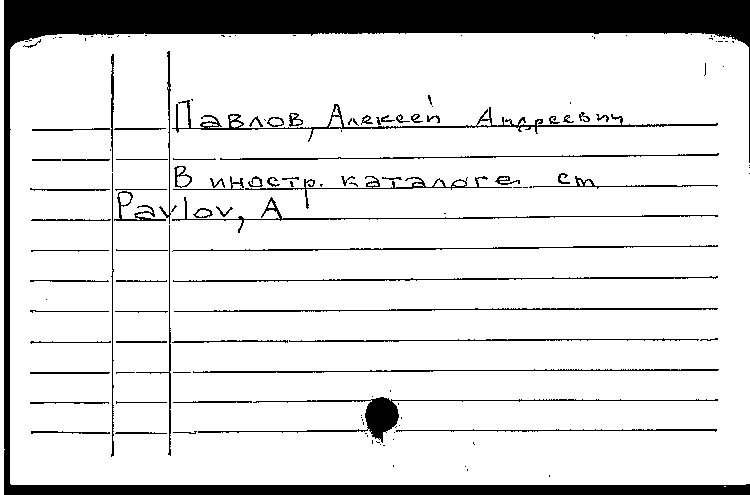 Павлов, Алексей Андреевич
В иностр. каталоге см.
Pavlov, A